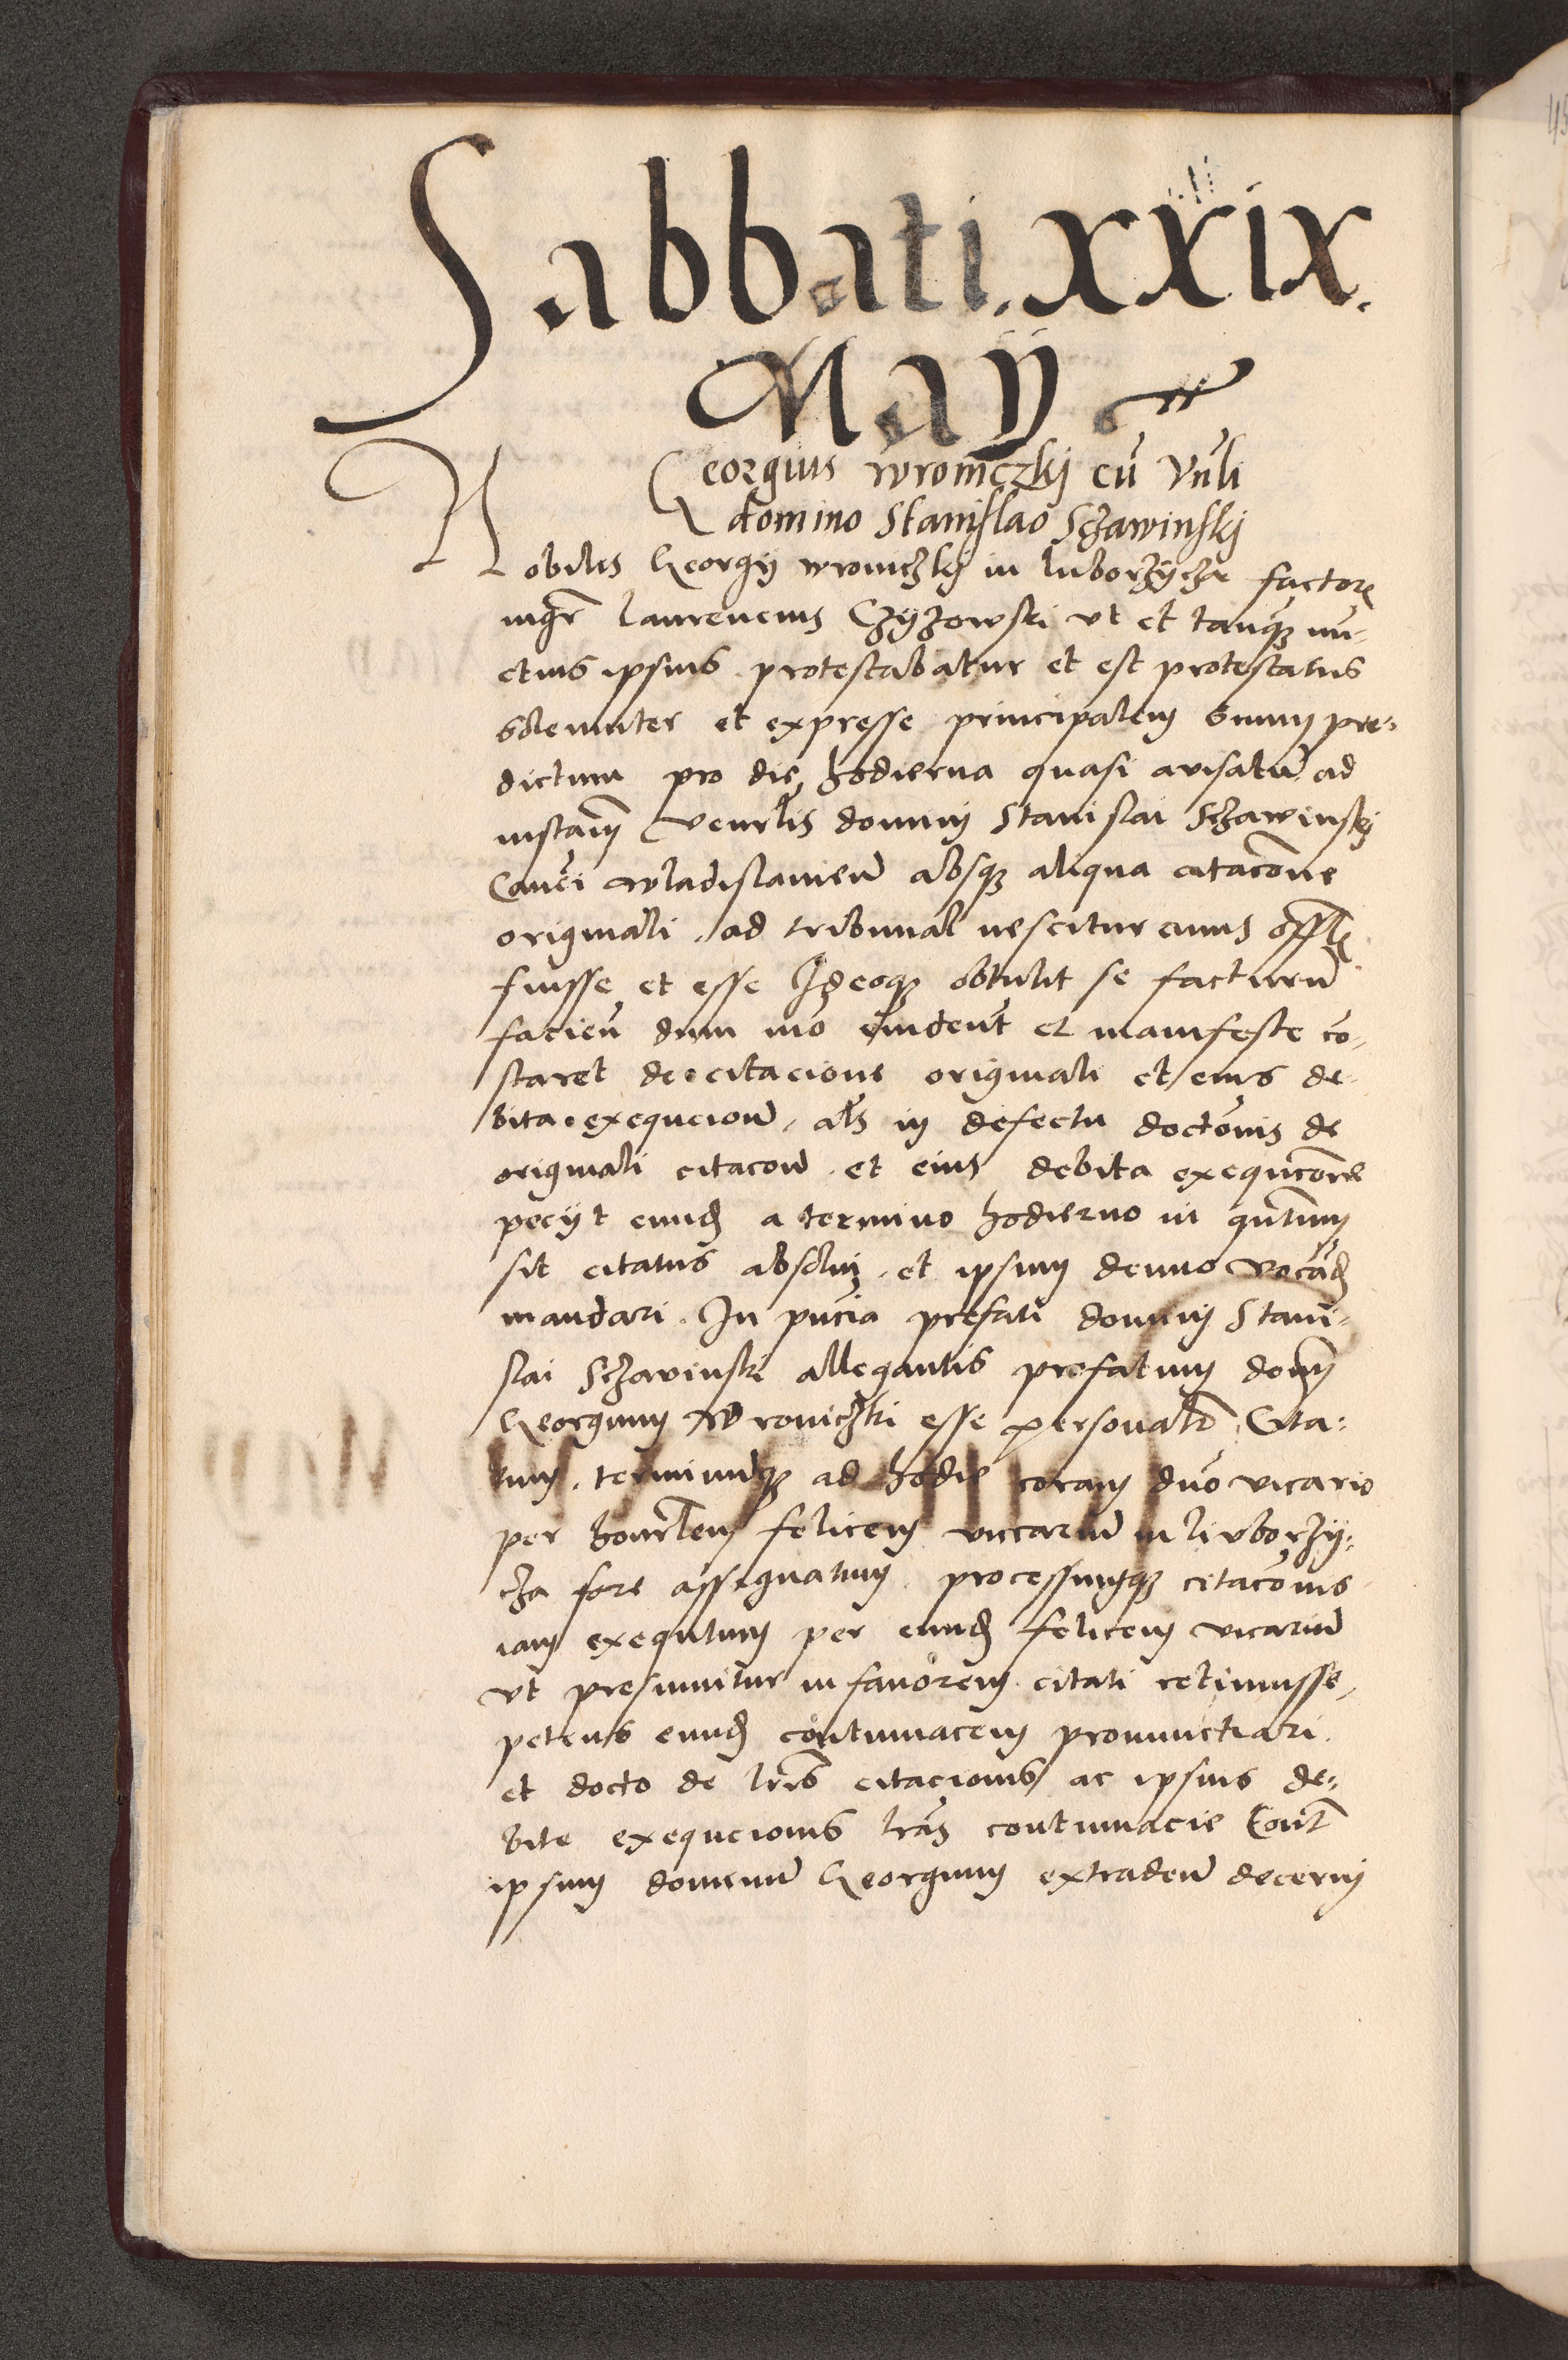 Sabbati. xxix.
Maÿ
Georgius wroniczkj cū Vn̄li
domino Stanislao Schawinskj
Nobilis Georgÿ wroniczkj in luborzÿcze factor
mgr̄ laurencius Czÿzowski vt et tanq̄ nu-
ctius ipsius protestabatur et est protestatus
solemniter et expresse principalem suum pre-
dictum pro die hodierna quasi avisatū ad
instanm̄ Venerlis domini Stanislai Schawinskj
Canci wladislauien̄ absq aliqua citacōne
originali ad tribunal nescitur cuius offi̅
fuisse et esse Ideoq obtulit se facturū
facien̄ dum mō euident̄ et manifeste cō-
staret de citacione originali et eius de-
bita exequcion̄, als in defectu doctōnis de
originali citacōn̄ et eius debita exequcōne
pecÿt eund a termino hodierno in qn̄tum
sit citatus absolui et ipsum denuo vocād
mandari. In pn̄cia prefati domini Stani-
slai Schavinski allegantis prefatum domm̄
Georgium Wroniczki esse personalr̄ Cita-
tum, terminūq ad hodie coram dn̄o vicario
per honrlem felicem vicariū in luborzÿ-
cza fore assignatum processumq citacōnis
iam exequtum per eund felicem vicariū
vt presumitur in fauorem citati retinuisse,
petens eund contumacem pronunctiari
et docto de lr̄is citacionis ac ipsius de-
bite exequcionis lr̄as contumacie Cont̄
ipsum dominū Georgium extraden̄ decerni